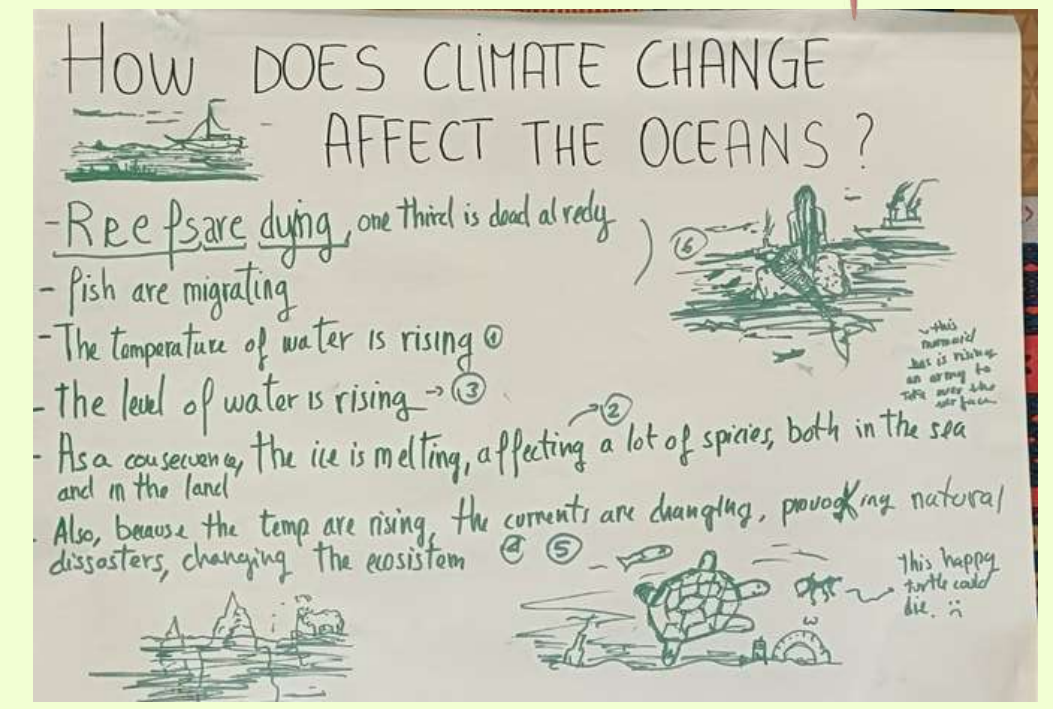 HOW DOES CLIMATE CHANGE
AFFECT THE OCEANS?
- Reefs are dying, one third is dead alredy
⑥
- fish are migrating
- The temperature of water is rising ①
- the level of water is rising → ③
②
- As a consecuence, the ice is melting, affecting a lot of spicies, both in the sea
and in the land
- Also, because the temp are rising, the currents are changing, provoking natural
dissasters, changing the ecosistem ④ ⑤
this
mermaid
is rising
an army to
take over the
surface
this happy
turtle could
die. :(